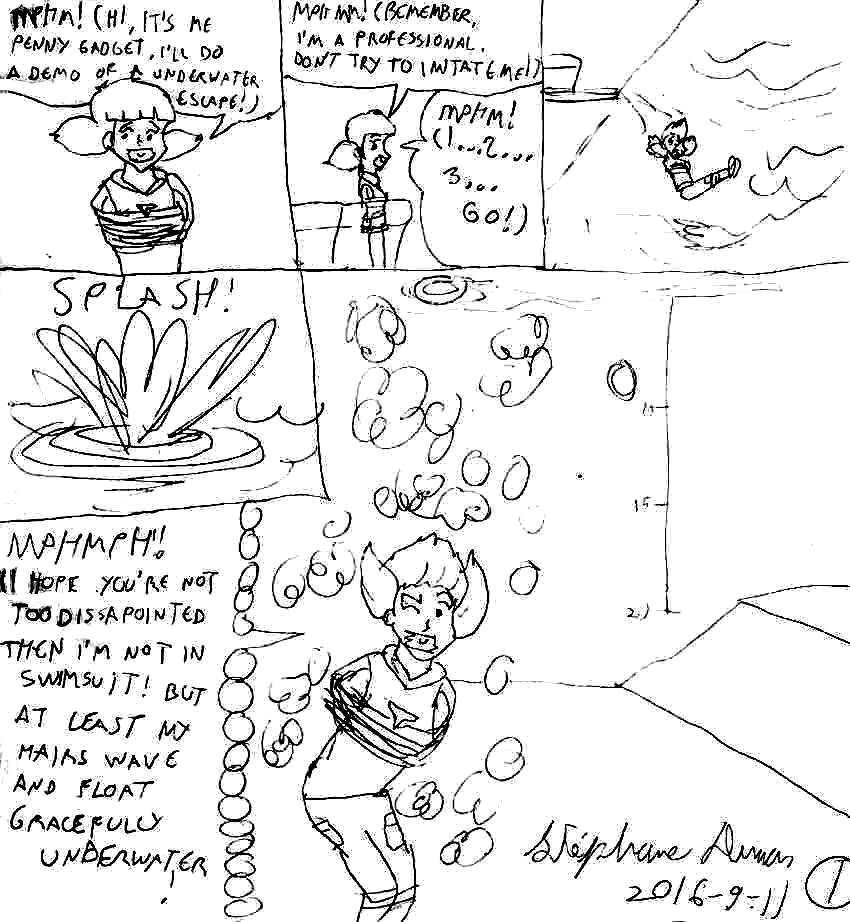 MPHM! (HI, IT'S ME
PENNY GADGET, I'LL DO
A DEMO OF A UNDERWATER
ESCAPE!)
MPH MM! (REMEMBER,
I'M A PROFESSIONAL.
DON'T TRY TO IMITATE ME!)
MPHM!
(1...2...
3...
GO!)
SPLASH!
10
15
20
MPHMPH!!
I HOPE YOU'RE NOT
TOO DISSAPOINTED
THEN I'M NOT IN
SWIMSUIT! BUT
AT LEAST MY
HAIRS WAVE
AND FLOAT
GRACEFULLY
UNDERWATER
!
Stéphane Dumas
2016-9-11
1